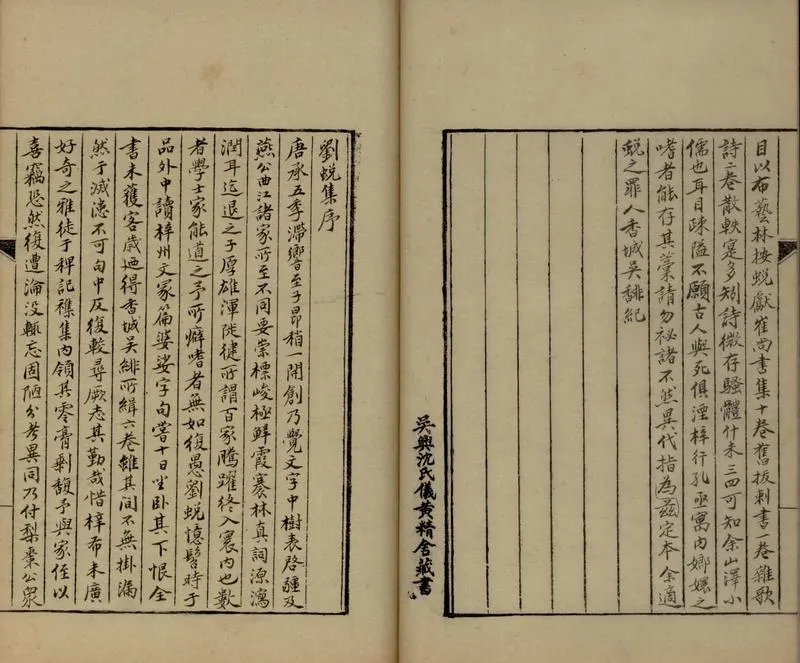 目以布藝林按蛻獻崔尚書集十卷舊拔刺書一卷雜歌
詩二卷散軼寔多矧詩微存騷體什未三四可知余山澤小
儒也耳目疎隘不願古人與死俱湮梓行孔亟寓內嫏嬛之
嗜者能存其藁請勿祕諸不然異代指為茲定本余適
蛻之罪人香城吳馡紀
吳興沈氏儀黃精舍藏書
劉蛻集序
唐承五季滯響至子昂稍一開創乃覺文字中樹表啓疆及
燕公曲江諸家所至不同要崇標峻極鮮霞褰林真詞源瀉
潤耳迄退之子厚雄渾陡健所謂百家騰躍終入寰內也數
者學士家能道之予所癖嗜者無如復愚劉蛻憶髫時于
品外中讀梓州文冢篇婆娑字句嘗十日坐卧其下恨全
書未獲客歲廼得香城吳緋所緝六卷雖其間不無掛漏
然于滅漶不可句中反復較尋厥志其勤哉惜梓布未廣
好奇之雅徒于稗記襍集內領其零膏剩馥予與家侄以
喜竊恐然復遭淪没輒忘固陋分考異同乃付梨棗公衆